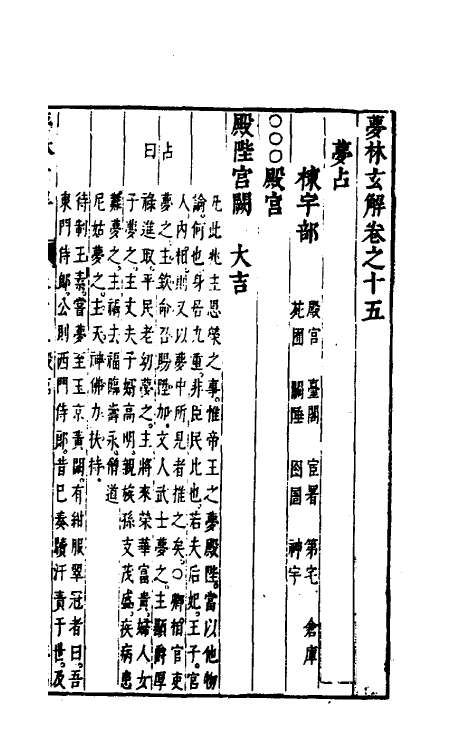 夢林玄解卷之十五
夢占
棟宇部
殿宮 臺閣 宦署 第宅 倉庫
苑囿 闕陛 囹圄 神宇
○○○殿宮
殿陛宮闕 大吉
占曰
凡此兆主恩榮之專惟帝王之夢殿陛當以他物
論何也身居九重非臣民比也若夫后妃王子宮
人內相則又以夢中所見者推之矣○卿相官吏
夢之主欽命召賜陞加文人武士夢之主顯爵厚
祿進取平民老幼夢之主將來榮華富貴婦人女
子夢之主丈夫子婿高明親族孫支茂盛疾病患
難夢之主禍去福臨壽永僧道
尼姑夢之主天神佛力扶持
待制王素嘗夢至玉京黃闕有紺服翠冠者曰吾
東門侍郎公則西門侍郎昔巳奏牘汙責于世及